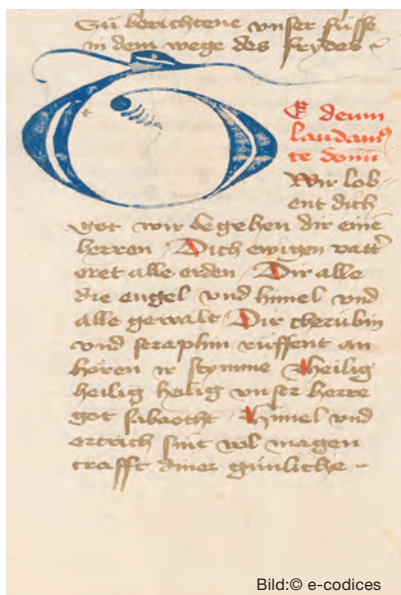 Zů berichtene vnser fůsse
in dem wege des frydes
TE deum
laudamꝰ
te domı̄
Wir lob-
ent dich
got wir begehen dir eine
herren Dich ewigen vatt̓
eret alle erden Dir alle
die engel vnd himel vnd
alle gewalt Dir cherubin
vnd seraphin rüffent an
hören ir stymme Heilig
heilig heilig vnser herre
got sabaoth Himel vnd
ertrich sint vol magen
crafft diner günliche
Bild:© e-codices